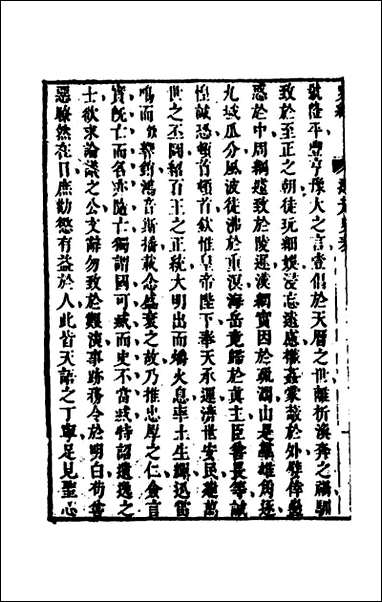 號隆平豐亨豫大之言壹倡於天曆之世離析渙奔之禍馴
致於至正之朝徒玩細娛浸忘遠慮權姦蒙蔽於外嬖倖蠱
惑於中周綱遽致於陵遲漢網實因於疏濶由是羣雄角逐
九域瓜分風波徒沸於重溟海岳竟歸於真主臣善長等誠
惶誠恐頓首頓首欽惟皇帝陛下奉天承運濟世安民建萬
世之丕圖紹百王之正統大明出而爝火息率土生輝迅雷
鳴而衆響銷鴻音斯播載念盛衰之故乃推忠厚之仁僉言
實旣亡而名亦隨亡獨謂國可滅而史不當滅特詔遺逸之
士欲求論議之公文辭勿致於艱深事跡務令於明白苟善
惡瞭然在目庶勸懲有益於人此皆天語之丁寧足見聖心